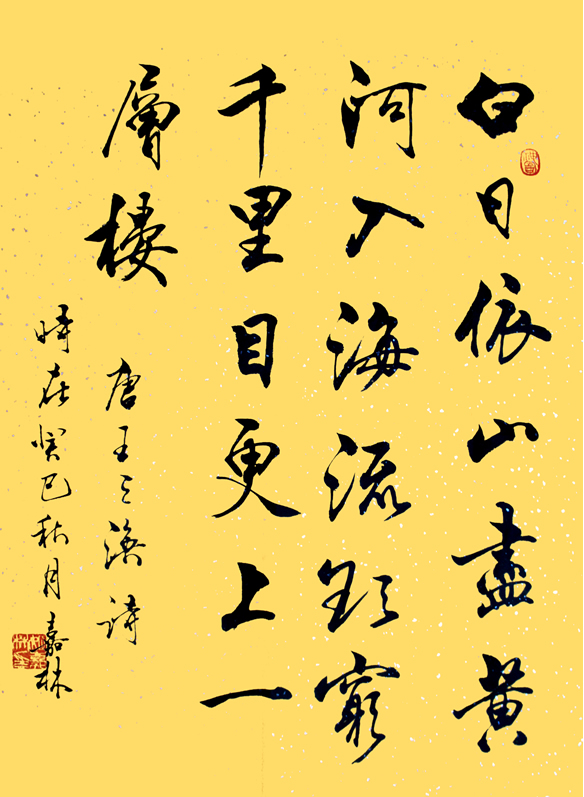 白日依山盡黃
河入海流欲窮
千里目更上一
層樓
唐王之渙詩
時在癸巳秋月嘉林